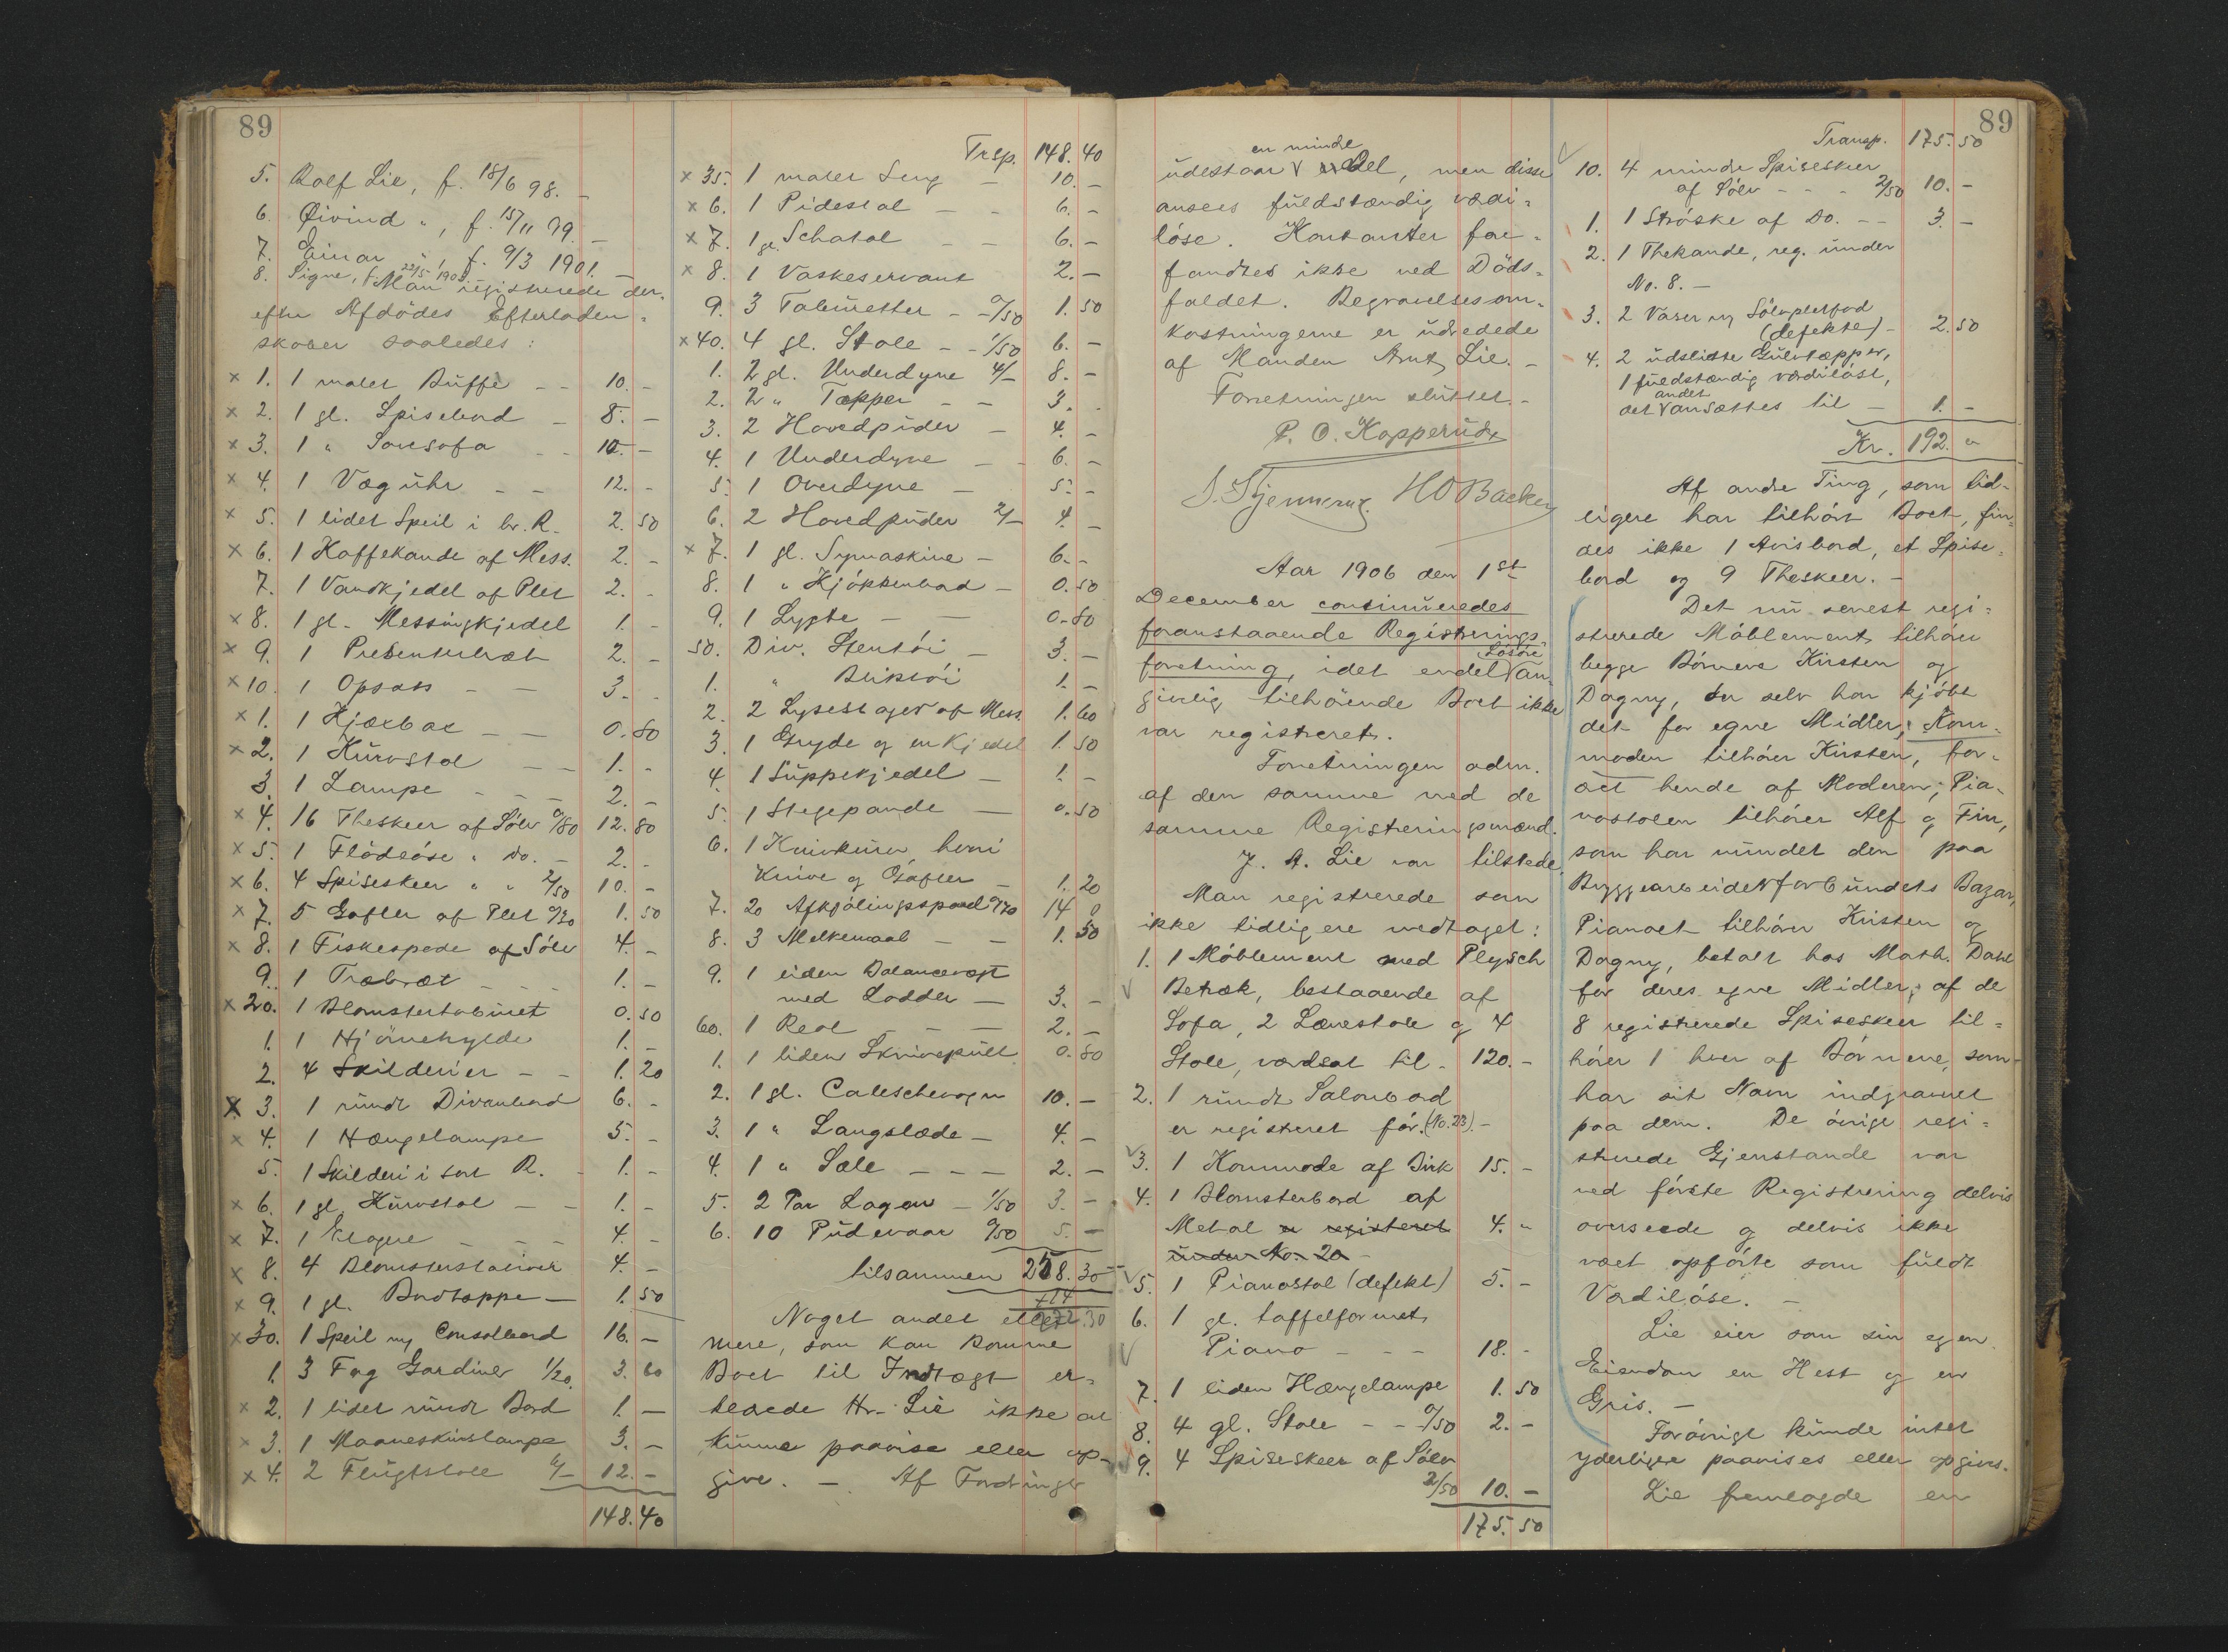 89
5. Rolf Lie, f. 18/6 98. –
6. Øivind ", f. 15/11 99. –
7. Einar ", f. 9/3 1901. –
8. Signe, f. 22/5 1903. –
Man registrerede der-
efter Afdödes Efterladen-
skaber saaledes:
x 1. 1 malet Buffe – – 10. –
x 2. 1 gl. Spisebord – 8. –
x 3. 1 " Sovesofa – – 10. –
x 4. 1 Væguhr – – 12. –
x 5. 1 lidet Speil i br. R. 2. 50
x 6. 1 Kaffekande af Mess. 2. –
7. 1 Vandkjedel af Plet 2. –
x 8. 1 gl. Messingkjedel 1. –
x 9. 1 Presenterbræt 2. –
x 10. 1 Opsats – – 3. –
x 1. 1 – – 0. 80
x 2. 1 Kurvstol – – 1. –
3. 1 Lampe – – – 2. –
x 4. 16 Theskeer af Sölv 0/80 12. 80
x 5. 1 Flödeöse " do. – 2. –
x 6. 4 Spiseskeer " " 2/50 10. –
x 7. 5 Gafler af Plet 0/30 1. 50
x 8. 1 Fiskespade af Sölv 4. –
9. 1 Træbræt – – – 1. –
x 20. 1 Blomstertabüret 0. 50
1. 1 Hjörnehylde 1. –
2. 4 Skilderier – – 1. 20
x 3. 1 rundt Divanbord 6. –
x 4. 1 Hængelampe 5. –
5. 1 Skilderi i sort R. – 1. –
x 6. 1 gl. Kurvstol – – 1. –
x 7. 1 Etagere – – – 4. –
x 8. 4 Blomsterstativer 4. –
x 9. 1 gl. Bordtæppe – 1. 50
x 30. 1 Speil m/ Consolbord 16. –
1. 3 Fag Gardiner 1/20 3. 60
x 2. 1 lidet rundt Bord 1. –
x 3. 1 Maaneskinslampe 3. –
x 4. 2 Flugtstole 6/– 12. –
148. 40
Trsp. 148. 40
x 35. 1 malet Seng – 10. –
x 6. 1 Pidestal – – 6. –
x 7. 1 gl. Schatol – – 6. –
x 8. 1 Vaskeservant 2. –
9. 3 Tabüretter – – 0/50 1. 50
x 40. 4 gl. Stole – – 1/50 6. –
1. 2 gl. Underdyne 4/– 8. –
2. 2 " Tæpper – – 3. –
3. 2 Hovedpuder – 4. –
4. 1 Underdyne – – 6. –
5. 1 Overdyne – 5. –
6. 2 Hovedpuder 2/– 4. –
x 7. 1 gl. Symaskine – 6. –
8. 1 " Kjökkenbord – 0. 50
9. 1 Lygte – – 0. 80
50. Div. Stentöi – 3. –
1. " Bliktöi 1. –
2. 2 Lysestager af Mess. 1. 60
3. 1 Gryde og en Kjedel 1. 50
4. 1 Suppekjedel – 1. –
5. 1 Stegepande – 0. 50
6. 1 Knivkurv, hvori
Knive og Gafler – 1. 20
7. 20 Afkjölingsspand 0/70 14 0
8. 3 Melkemaal – – 1. 50
9. 1 liden Balancevægt
med Lodder – 3. –
60. 1 Reol – – – 2. –
1. 1 liden Skrivepult 0. 80
2. 1 gl. Caleschevogn 10. –
3. 1 " Langslæde – 4. –
4. 1 " Sæle – – – 2. –
5. 2 Par Lagen – 1/50 3. –
6. 10 Pudevaar 0/50 5. –
tilsammen 258. 30
+ 14
272. 30
Noget andet eller
mere, som kan komme
Boet til Indtægt er-
klærede Hr. Lie ikke at
kunne paavise eller op-
give. – Af Fordringer
89
en mindre
udestaar V en Del, men disse
ansees fuldstændig værdi-
löse. Kontanter fore-
fandtes ikke ved Döds-
faldet. Begravelsesom-
kostningerne er udredede
af Manden Arnt Lie. –
Forretningen sluttet. –
P. O. Kopperud
HO Backe
Aar 1906 den 1st
December continueredes
foranstaaende Registrerings-
Lösöre
forretning, idet endel V an-
givelig tilhörende Boet ikke
var registreret.
Forretningen adm.
af den samme med de
samme Registreringsmænd.
J. A. Lie var tilstede.
Man registrerede som
ikke tidligere medtaget:
1. 1 Möblement med Plysch
Betræk, bestaaende af
Sofa, 2 Lænestole og 4
Stole, værdsat til – 120. –
2. 1 rundt Salonbord
er registreret för. (No. 23). –
3. 1 Kommode af Birk 15. –
4. 1 Blomsterbord af
Metal er registreret 4. –
under No. 20 –
5. 1 Pianostol (defekt) 5. –
6. 1 gl. taffelformet
Piano – – – 18. –
7. 1 liden Hængelampe 1. 50
8. 4 gl. Stole – – 0/50 2. –
9. 4 Spiseskeer af Sölv
2/50 10. –
175. 50
Transp. 175. 50
10. 4 mindre Spiseskeer
af Sölv – – – 2/50 10. –
1. 1 Ströske af do. – – 3. –
2. 1 Thekande, reg. under
No. 8. –
3. 2 Vaser m/ Sölvpletfod
(defekte) – 2. 50
4. 2 udslidte Gulvtæpper,
1 fuldstændig værdilöst,
andet
det V ansættes til – 1. –
Kr. 192. "
Af andre Ting, som tid-
ligere har tilhört Boet, fin-
des ikke 1 Avisbord, et Spise-
bord og 9 Theskeer. –
Det nu senest regi-
strerede Möblement tilhörer
begge Börnene Kirsten og
Dagny, der selv har kjöbt
det for egne Midler; Kom-
moden tilhörer Kirsten, for-
æret hende af Moderen; Pia-
nostolen tilhörer Alf og Finn,
som har vundet den paa
Byggearbeiderforbundets Bazar,
Pianoet tilhörer Kirsten og
Dagny, betalt hos Math. Dahl
for deres egne Midler; af de
8 registrerede Spiseskeer til-
hörer 1 hver af Börnene, som
har sit Navn indgravet
paa dem. De övrige regi-
strerede Gjenstande var
ved förste Registrering delvis
overseede og delvis ikke
været opförte som fuldt
Værdilöse. –
Lie eier som sin egen
Eiendom en Hest og en
Gris. –
Forövrigt kunde intet
yderligere paavises eller opgives.
Lie fremlagde en